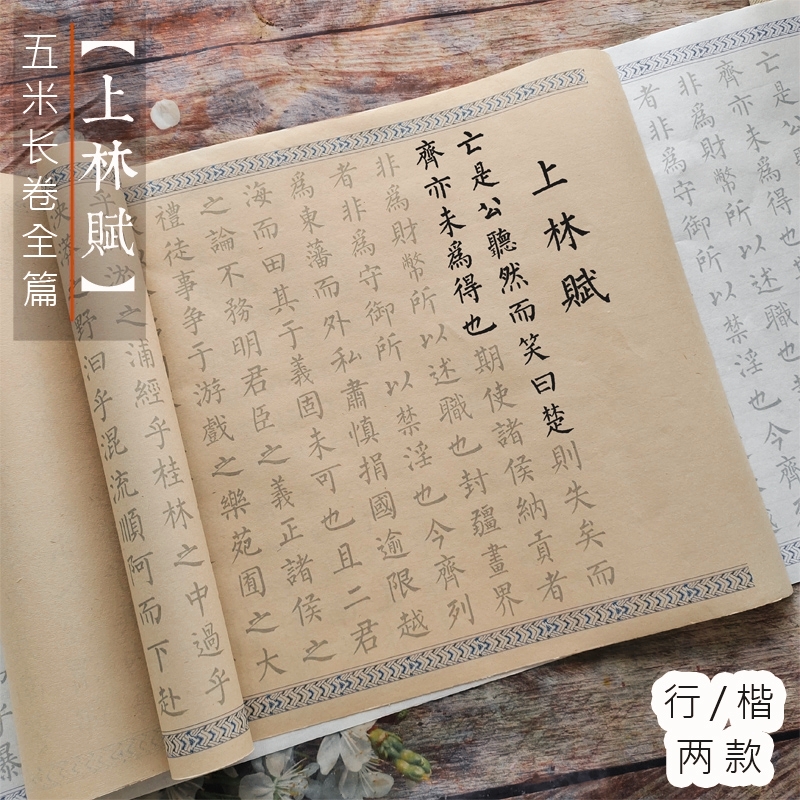 【上林賦】
五米长卷全篇
上林賦
亡是公聽然而笑曰楚則失矣而
齊亦未爲得也期使諸侯納貢者
非爲財幣所以述職也封疆畫界
者非爲守御所以禁淫也今齊列
爲東藩而外私肅慎捐國逾限越
海而田其于義固未可也且二君
之論不務明君臣之義正諸侯之
禮徒事争于游戲之樂苑囿之大
之浦經乎桂林之中過乎
之野汩乎混流順阿而下赴
亡是公
齊亦未爲得也
非爲財幣所以述職也
者非爲守御所以禁淫也今齊
行/楷
两款